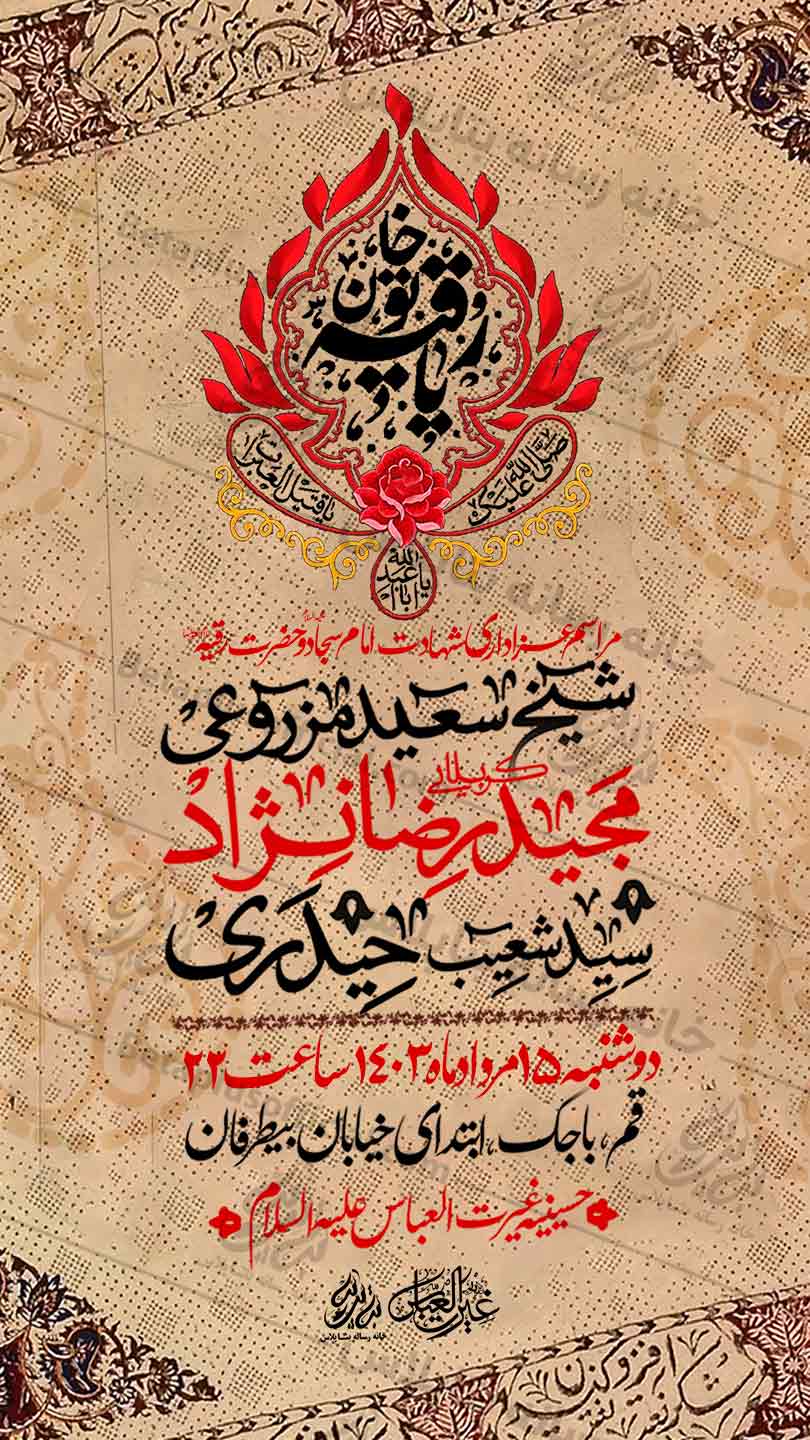 یا رقیه خاتون
صلی الله علیک
یا قتیل العبرات
یا اباعبدالله
مراسم عزاداری شهادت امام سجاد و حضرت رقیه
شیخ سعید مزروعی
کربلایی
مجید رضانژاد
سید شعیب حیدری
دوشنبه ۱۵ مرداد ماه ۱۴۰۳ ساعت ۲۲
قم، باجک، ابتدای خیابان بیطرفان
حسینیه غیرت العباس علیه السلام
غیرت العباس
خانه رسانه بتا پلاس